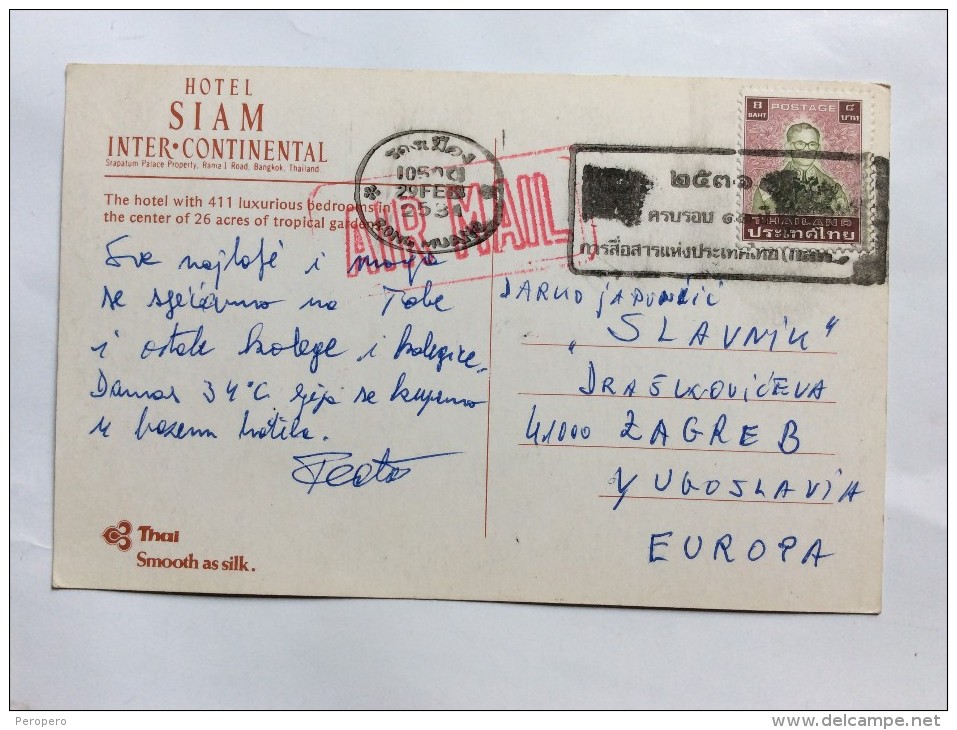 HOTEL
SIAM
INTER•CONTINENTAL
Srapatum Palace Property, Rama I Road, Bangkok, Thailand.
The hotel with 411 luxurious bedrooms in
the center of 26 acres of tropical gardens
AIR MAIL
รองเมือง
29 FEB
2531
RONG MUANG
8 POSTAGE ๘
BAHT บาท
THAILAND
ประเทศไทย
๒๕๓๑
ครบรอบ
การสื่อสารแห่งประเทศไทย
Sve najlepše i
se sjećamo na Tebe
i ostale kolege i kolegice.
Danas 34°C se kupamo
u bazenu hotela.
DARKO
"SLAVNIK"
DRAŠKOVIĆEVA
41000 ZAGREB
YUGOSLAVIA
EUROPA
Thai
Smooth as silk.
Peropero
delcampe.net